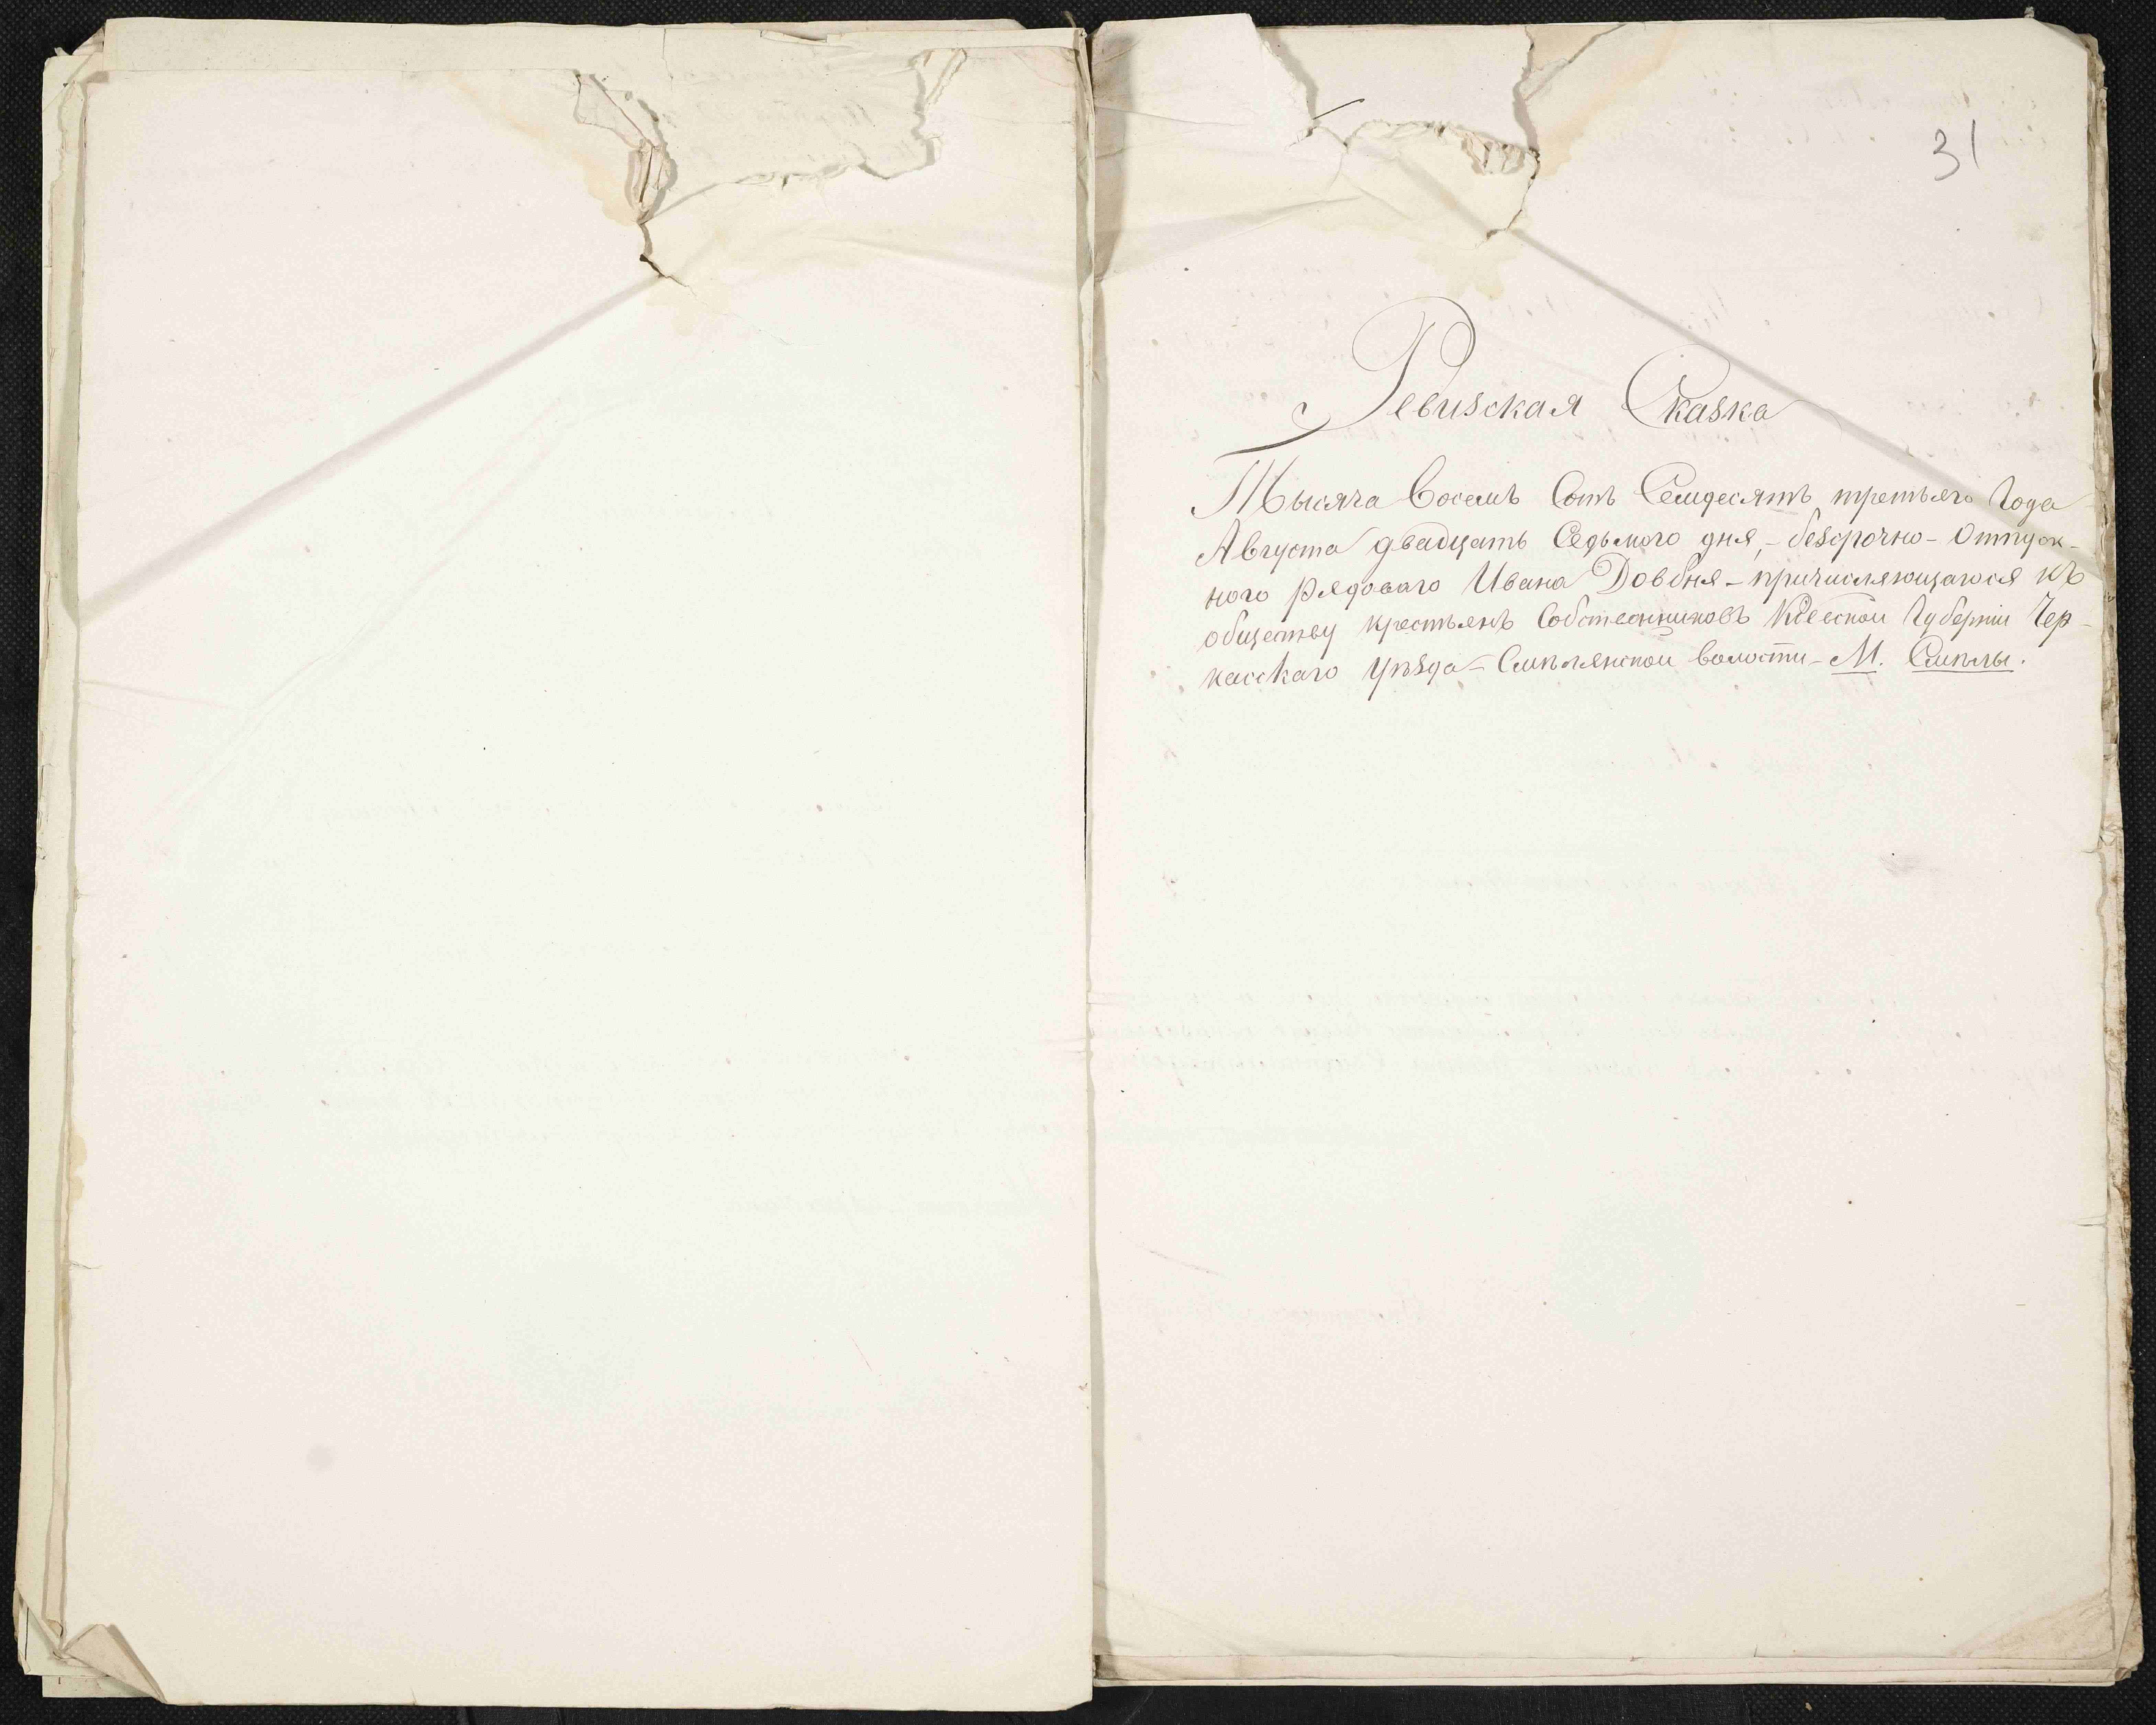 31
Ревизская Сказка
Тысяча Восемь Сотъ Семдесятъ третьяго Года
Августа двадцать Седьмого дня, - безсрочно - Отпуск-
ного Рядоваго Ивана Довбня - причисляющагося къ
обществу крестьянъ Собственниковъ Кіевской Губерніи Чер-
касскаго Уѣзда - Смѣлянской волости - М. Смѣлы.